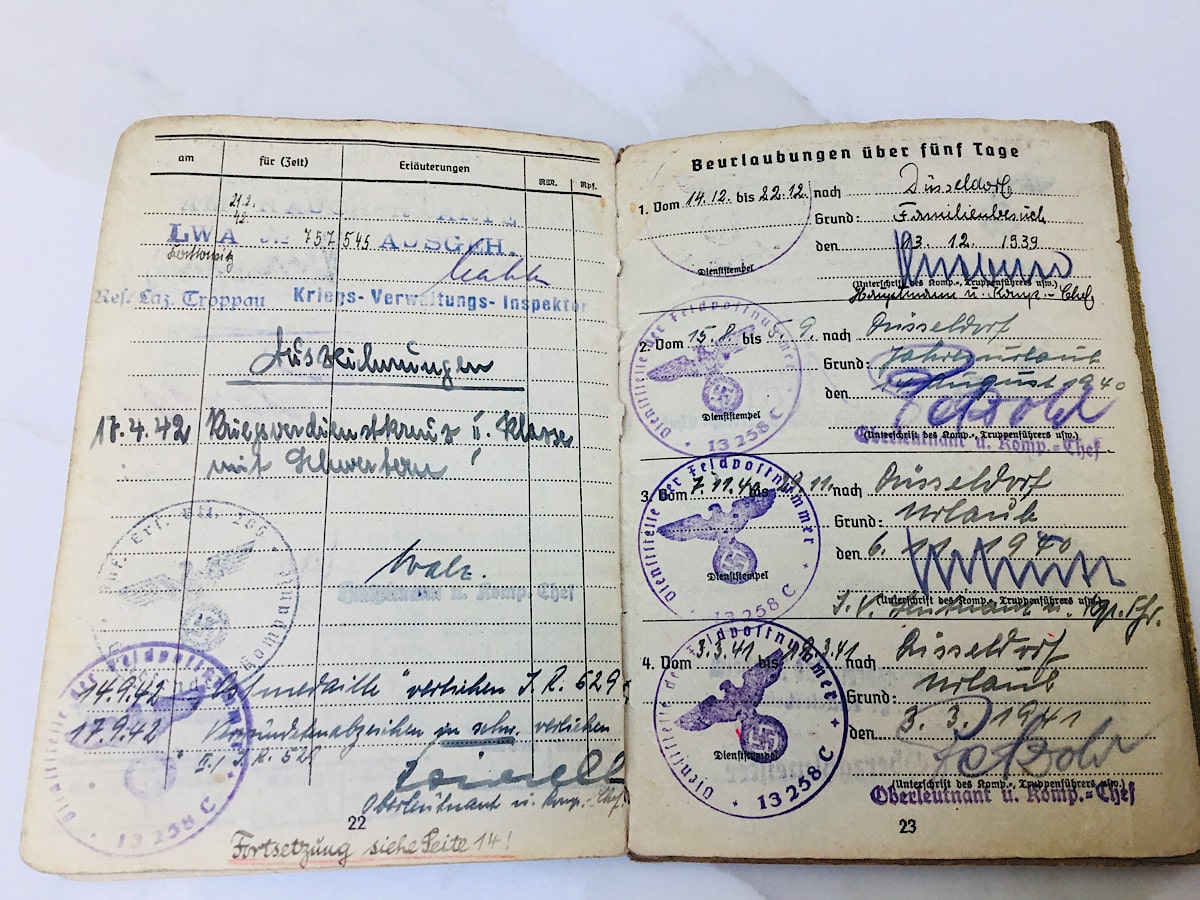 am für (Zeit) Erläuterungen RM. Rpf.
21.2.
42.
LWA 757 545 AUSGEH.
Res. Laz. Troppau Kriegs-Verwaltungs-Inspektor
Auszeichnungen
17.4.42 Kriegsverdienstkreuz II. Klasse
mit Schwertern
Hauptmann u. Komp. Chef
14.9.42 "Ostmedaille" verliehen I.R. 629
17.9.42 Verwundetenabzeichen in schw. verliehen
Oberleutnant u. Komp.-Chef
Dienststelle der Feldpostnummer
13258 C
22
Fortsetzung siehe Seite 14!
Beurlaubungen über fünf Tage
1. Vom 14.12. bis 22.12. nach Düsseldorf
Grund: Familienbesuch
den 13. 12. 1939
Dienststempel
(Unterschrift des Komp.-, Truppenführers usw.)
Hauptmann u. Komp.-Chef
2. Vom 15.8. bis 5.9. nach Düsseldorf
Grund: Jahresurlaub
den August 1940
Dienststempel
Dienststelle der Feldpostnummer
13258 C
(Unterschrift des Komp.-, Truppenführers usw.)
Oberleutnant u. Komp.-Chef
3. Vom 7.11.40 bis 11. nach Düsseldorf
Grund: Urlaub
den 6. 11. 1940
Dienststempel
Dienststelle der Feldpostnummer
13258 C
(Unterschrift des Komp.-, Truppenführers usw.)
4. Vom 3.3.41 bis 19.3.41 nach Düsseldorf
Grund: Urlaub
den 3. 3. 1941
Dienststempel
Dienststelle der Feldpostnummer
13258 C
(Unterschrift des Komp.-, Truppenführers usw.)
Oberleutnant u. Komp.-Chef
23